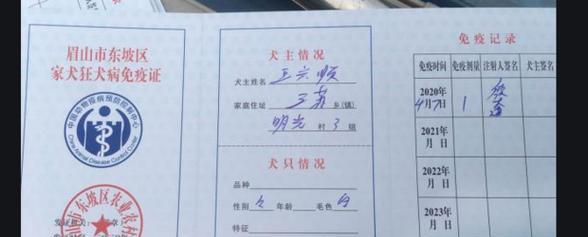 眉山市东坡区
家犬狂犬病免疫证
中国动物疫病预防控制中心
China Animal Disease Control Center
眉山市东坡区农业农村
发证机关
犬主情况
犬主姓名 王兴顺
家庭住址 三苏 乡(镇)
明光 村 3 组
犬只情况
品种
性别 年龄 毛色 白
特征
免疫记录
免疫时间 免疫剂量 注射人签名 犬主签名
2020年
4月7日 1
2021年
月 日
2022年
月 日
2023年
月 日